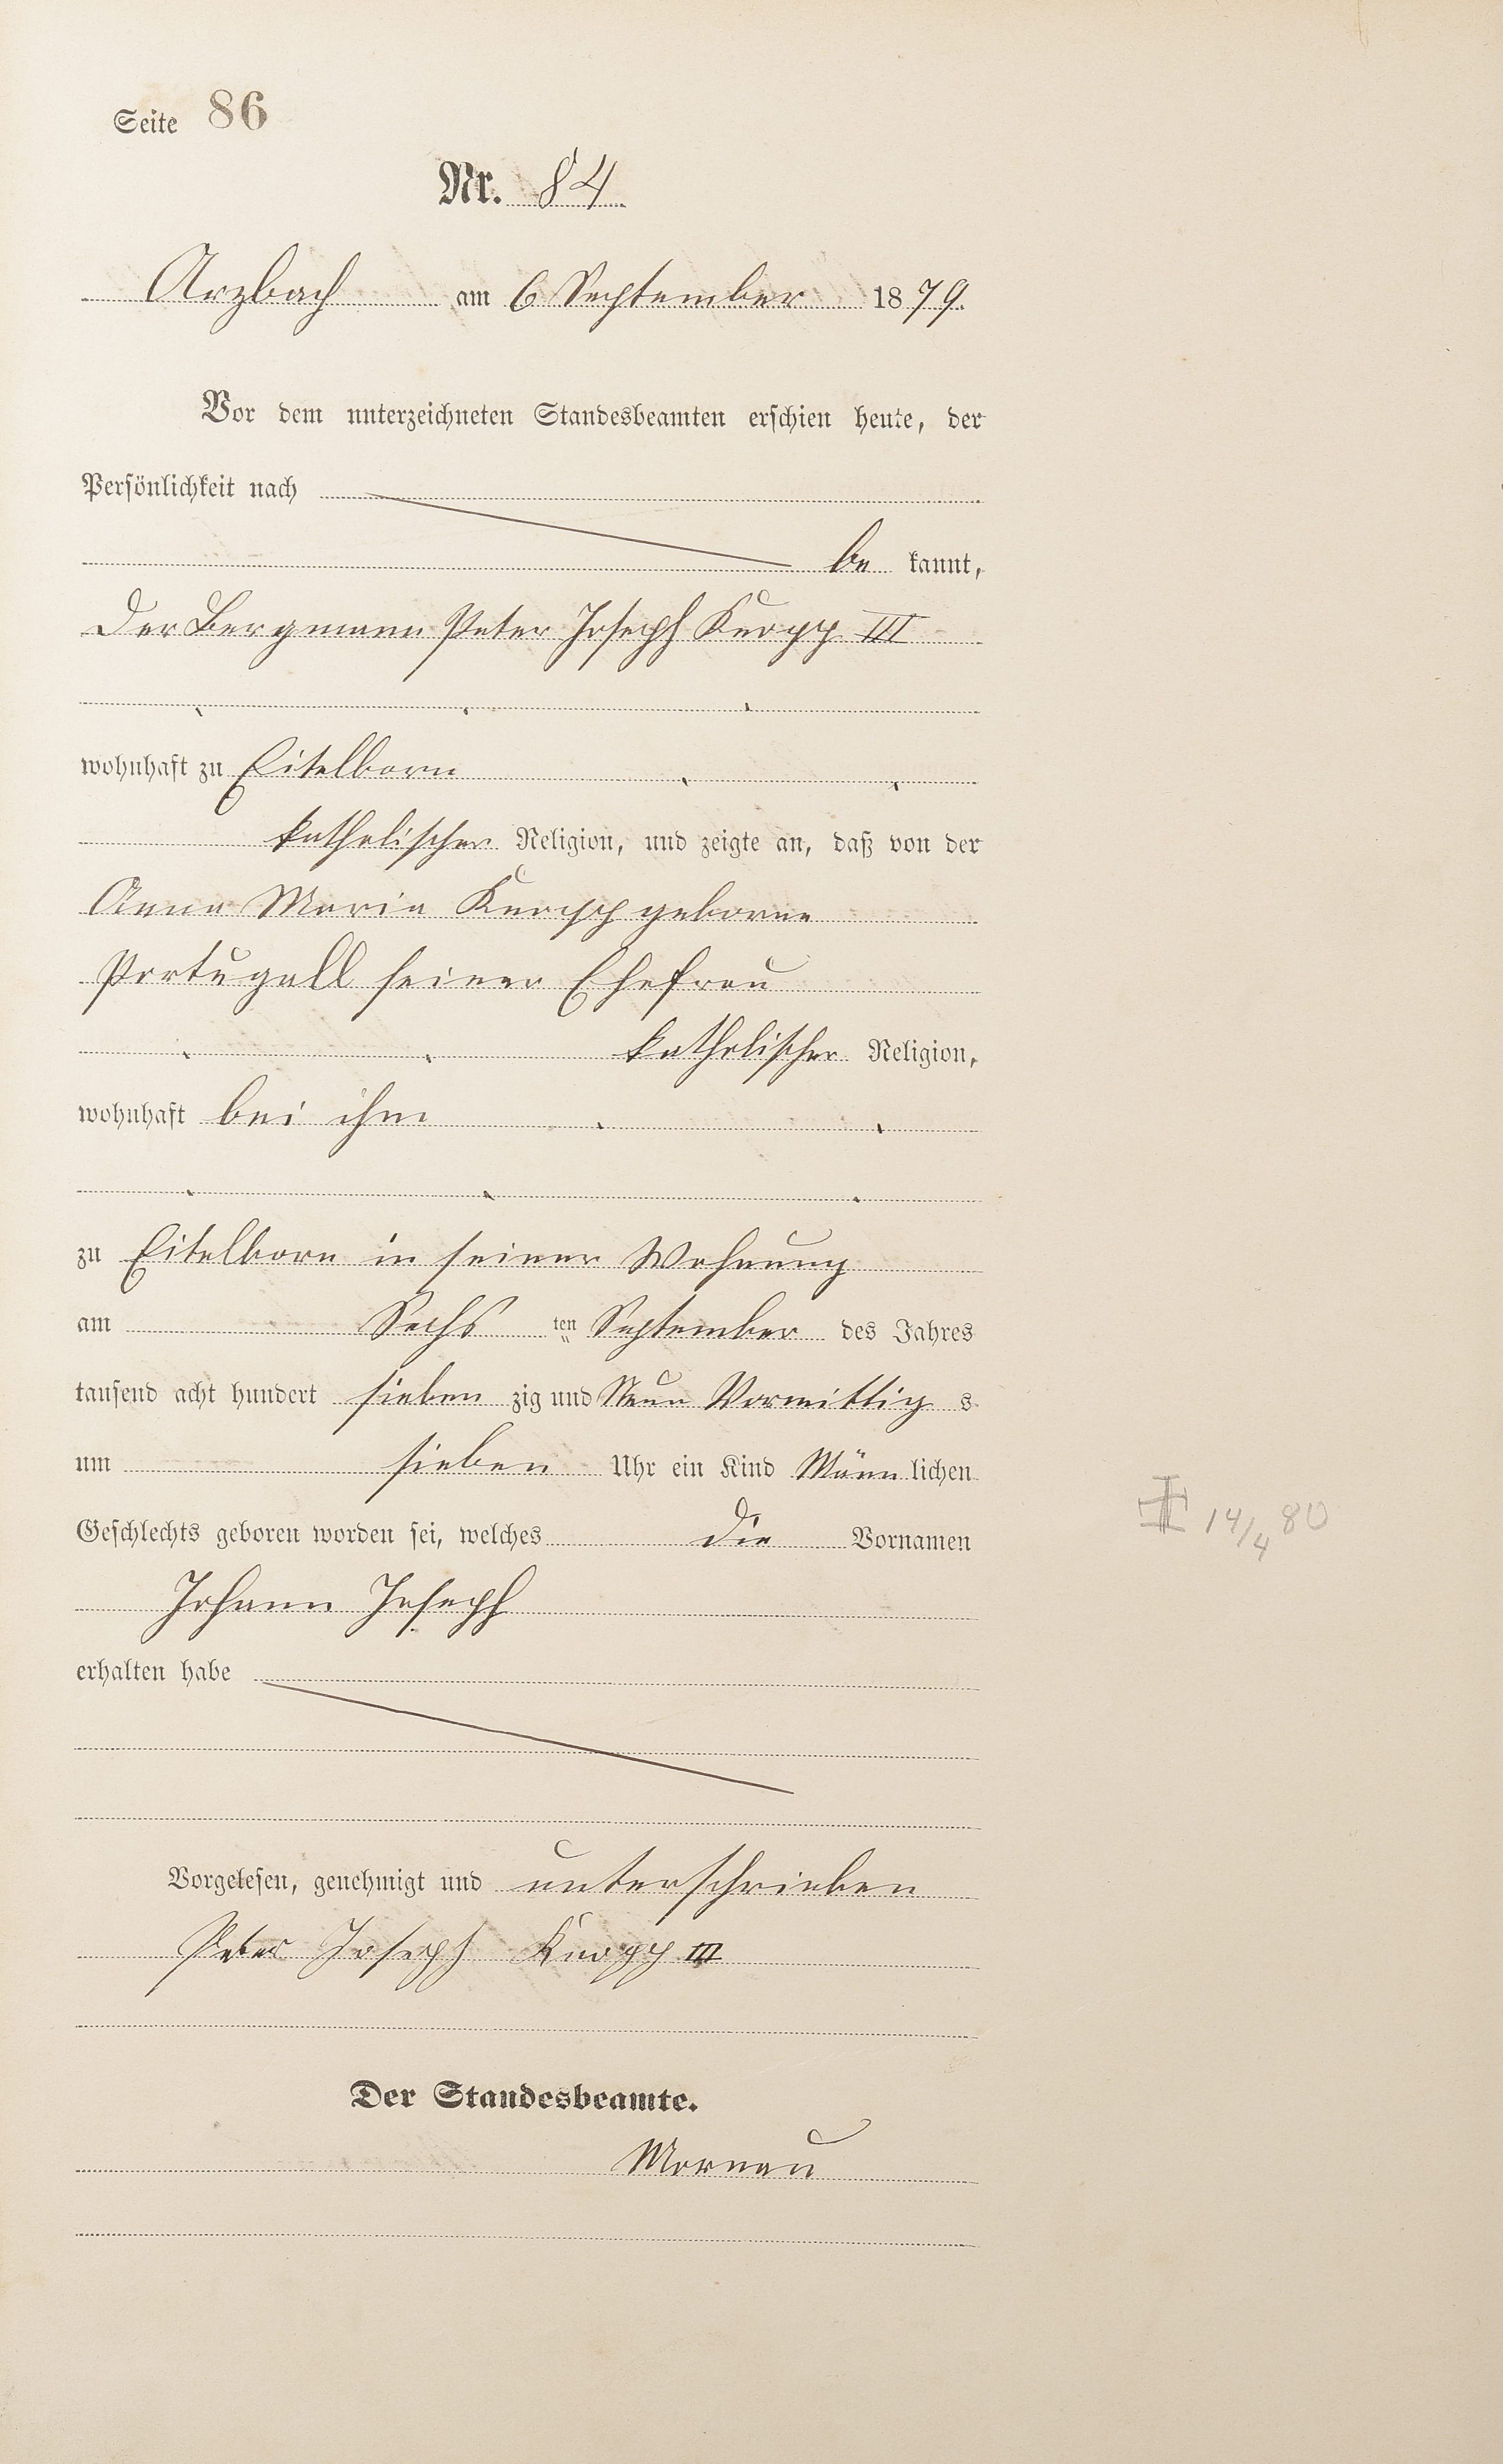 Seite 86
Nr. 84
Arzbach am 6 September 1879.
Vor dem unterzeichneten Standesbeamten erschien heute, der
Persönlichkeit nach
be kannt,
Der Bergmann Peter Joseph Knopp III
wohnhaft zu Eitelborn
katholischer Religion, und zeigte an, daß von der
Anna Maria Knopp geborne
Portugall seiner Ehefrau
katholischer Religion,
wohnhaft bei ihm
zu Eitelborn in seiner Wohnung
am Sechs ten September des Jahres
tausend acht hundert sieben zig und Neun Vormittig s
um sieben Uhr ein Kind Männ lichen
Geschlechts geboren worden sei, welches die Vornamen
Johann Joseph
erhalten habe
Vorgelesen, genehmigt und unterschrieben
Peter Joseph Knopp III
Der Standesbeamte.
Mornau
14/4 80